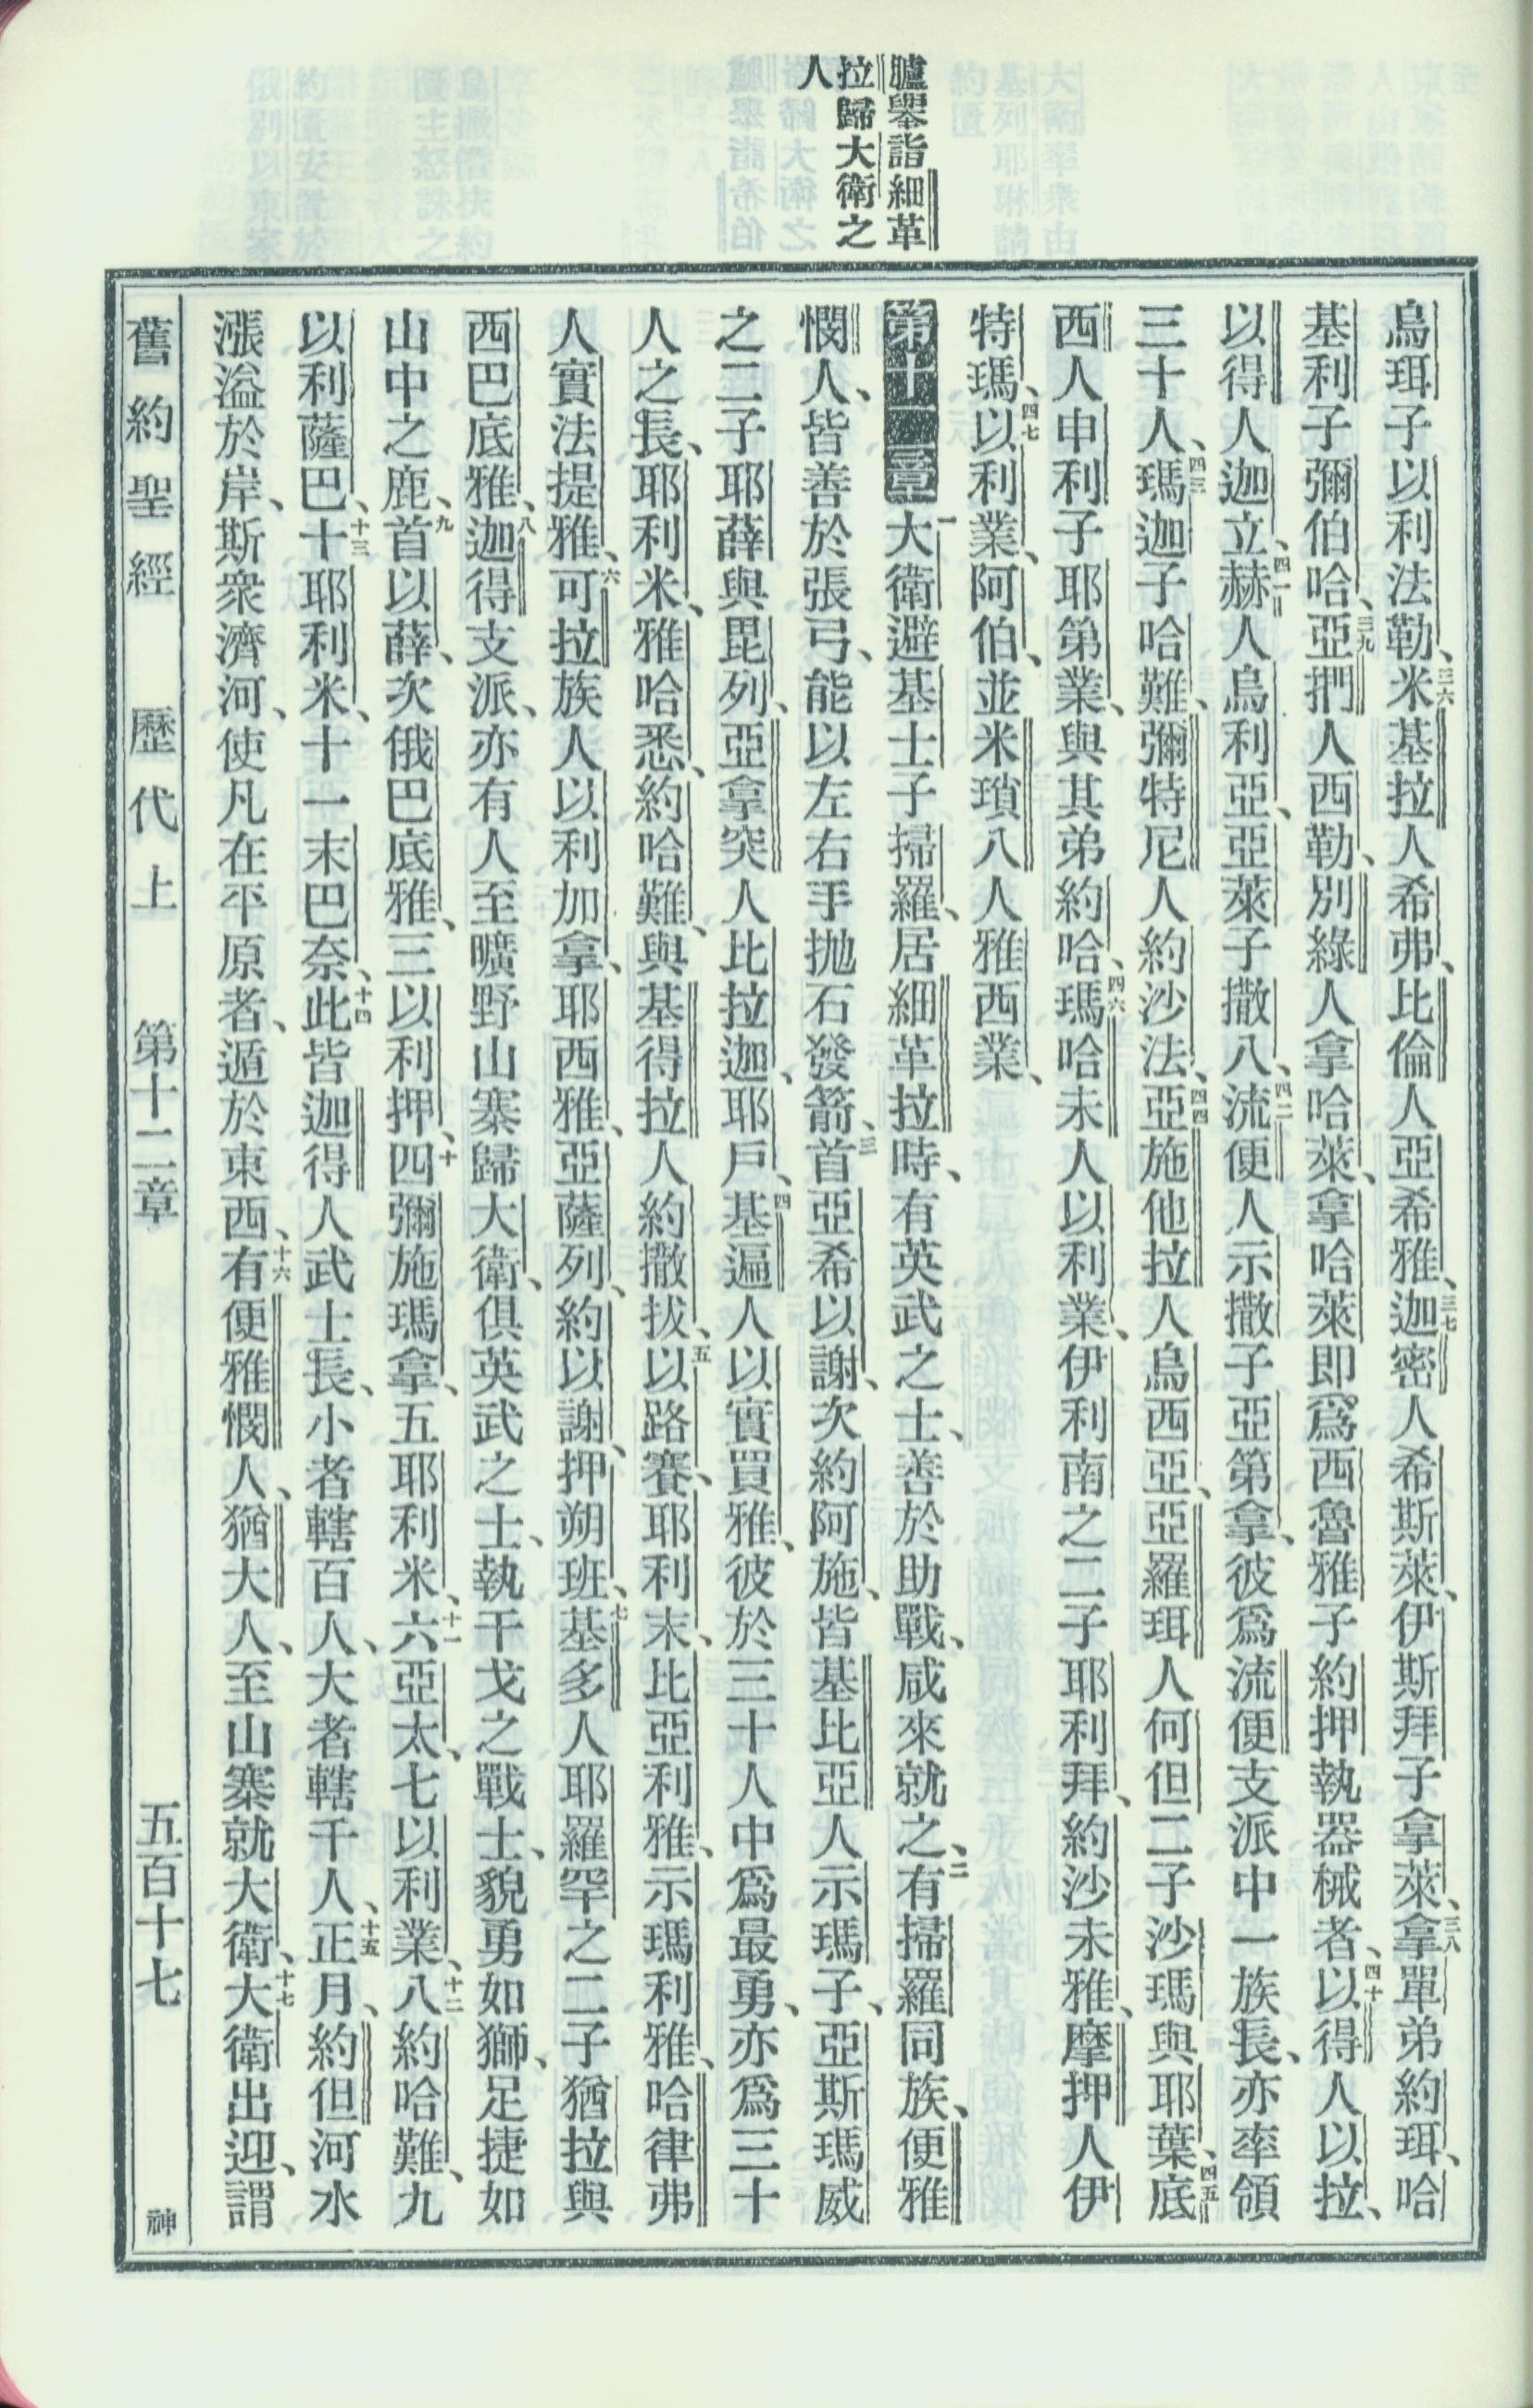 臚舉詣細革
拉歸大衛之
人
烏珥子以利法勒、三六米基拉人希弗、比倫人亞希雅、三七迦密人希斯萊、伊斯拜子拿萊、三八拿單弟約珥、哈
基利子彌伯哈、三九亞捫人西勒、別綠人拿哈萊、拿哈萊即爲西魯雅子約押執器械者、四十以得人以拉、
以得人迦立、四一赫人烏利亞、亞萊子撒八、四二流便人示撒子亞第拿、彼爲流便支派中一族長、亦率領
三十人、四三瑪迦子哈難、彌特尼人約沙法、四四亞施他拉人烏西亞、亞羅珥人何但二子沙瑪與耶葉、四五底
西人申利子耶第業、與其弟約哈、四六瑪哈未人以利業、伊利南之二子耶利拜、約沙未雅、摩押人伊
特瑪、四七以利業、阿伯、並米瑣八人雅西業、
第十二章一大衛避基士子掃羅、居細革拉時、有英武之士、善於助戰、咸來就之、二有掃羅同族、便雅
憫人、皆善於張弓、能以左右手拋石發箭、三首亞希以謝、次約阿施、皆基比亞人示瑪子、亞斯瑪威
之二子耶薛與毘列、亞拿突人比拉迦、耶戶、四基遍人以實買雅、彼於三十人中爲最勇、亦爲三十
人之長、耶利米、雅哈悉、約哈難、與基得拉人約撒拔、五以路賽、耶利末、比亞利雅、示瑪利雅、哈律弗
人實法提雅、六可拉族人以利加拿、耶西雅、亞薩列、約以謝、押朔班、七基多人耶羅罕之二子猶拉與
西巴底雅、八迦得支派、亦有人至曠野山寨歸大衛、俱英武之士、執干戈之戰士、貌勇如獅、足捷如
山中之鹿、九首以薛、次俄巴底雅、三以利押、十四彌施瑪拿、五耶利米、十一六亞太、七以利業、十二八約哈難、九
以利薩巴、十三十耶利米、十一末巴奈、十四此皆迦得人武士長、小者轄百人、大者轄千人、十五正月、約但河水
漲溢於岸、斯衆濟河、使凡在平原者、遁於東西、十六有便雅憫人、猶大人、至山寨就大衛、十七大衛出迎、謂
舊約聖經 歷代上 第十二章 五百十七 神